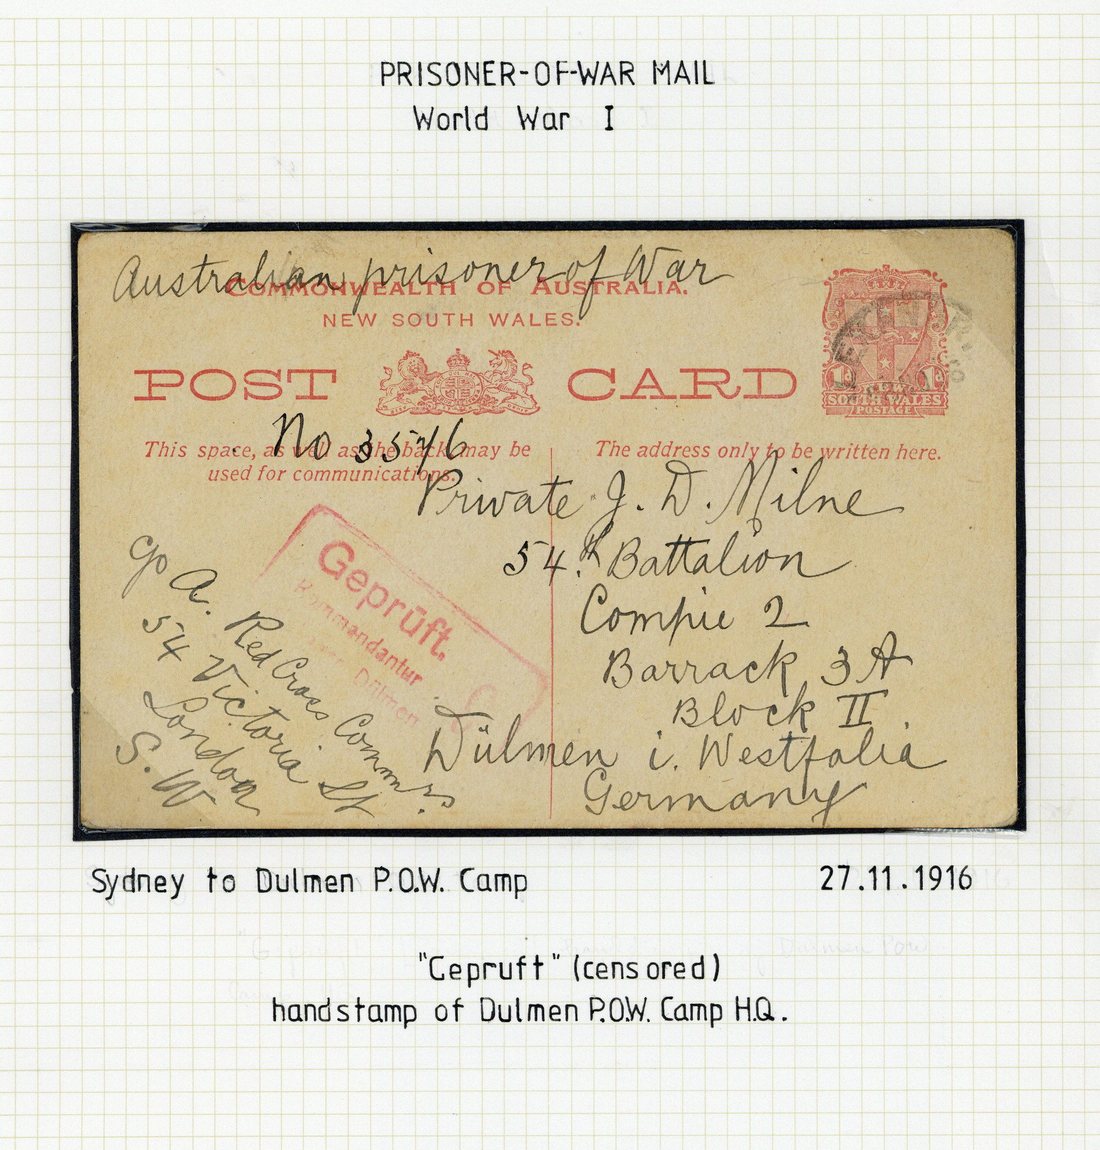 PRISONER-OF-WAR MAIL
World War I
Australian prisoner of War
COMMONWEALTH OF AUSTRALIA.
NEW SOUTH WALES.
POST CARD
1d 1d
SOUTH WALES
POSTAGE
No 3546
This space, as well as the back may be
used for communications.
The address only to be written here.
Private J. D. Milne
54th Battalion
Compie 2
Barrack 3A
Block II.
Dülmen i. Westfalia
Germany
Geprüft.
Kommandantur
Dülmen
c/o A. Red Cross Commrs.
54 Victoria St
London
S. W
Sydney to Dulmen P.O.W. Camp
27.11.1916
"Gepruft" (censored)
handstamp of Dulmen P.O.W. Camp H.Q.